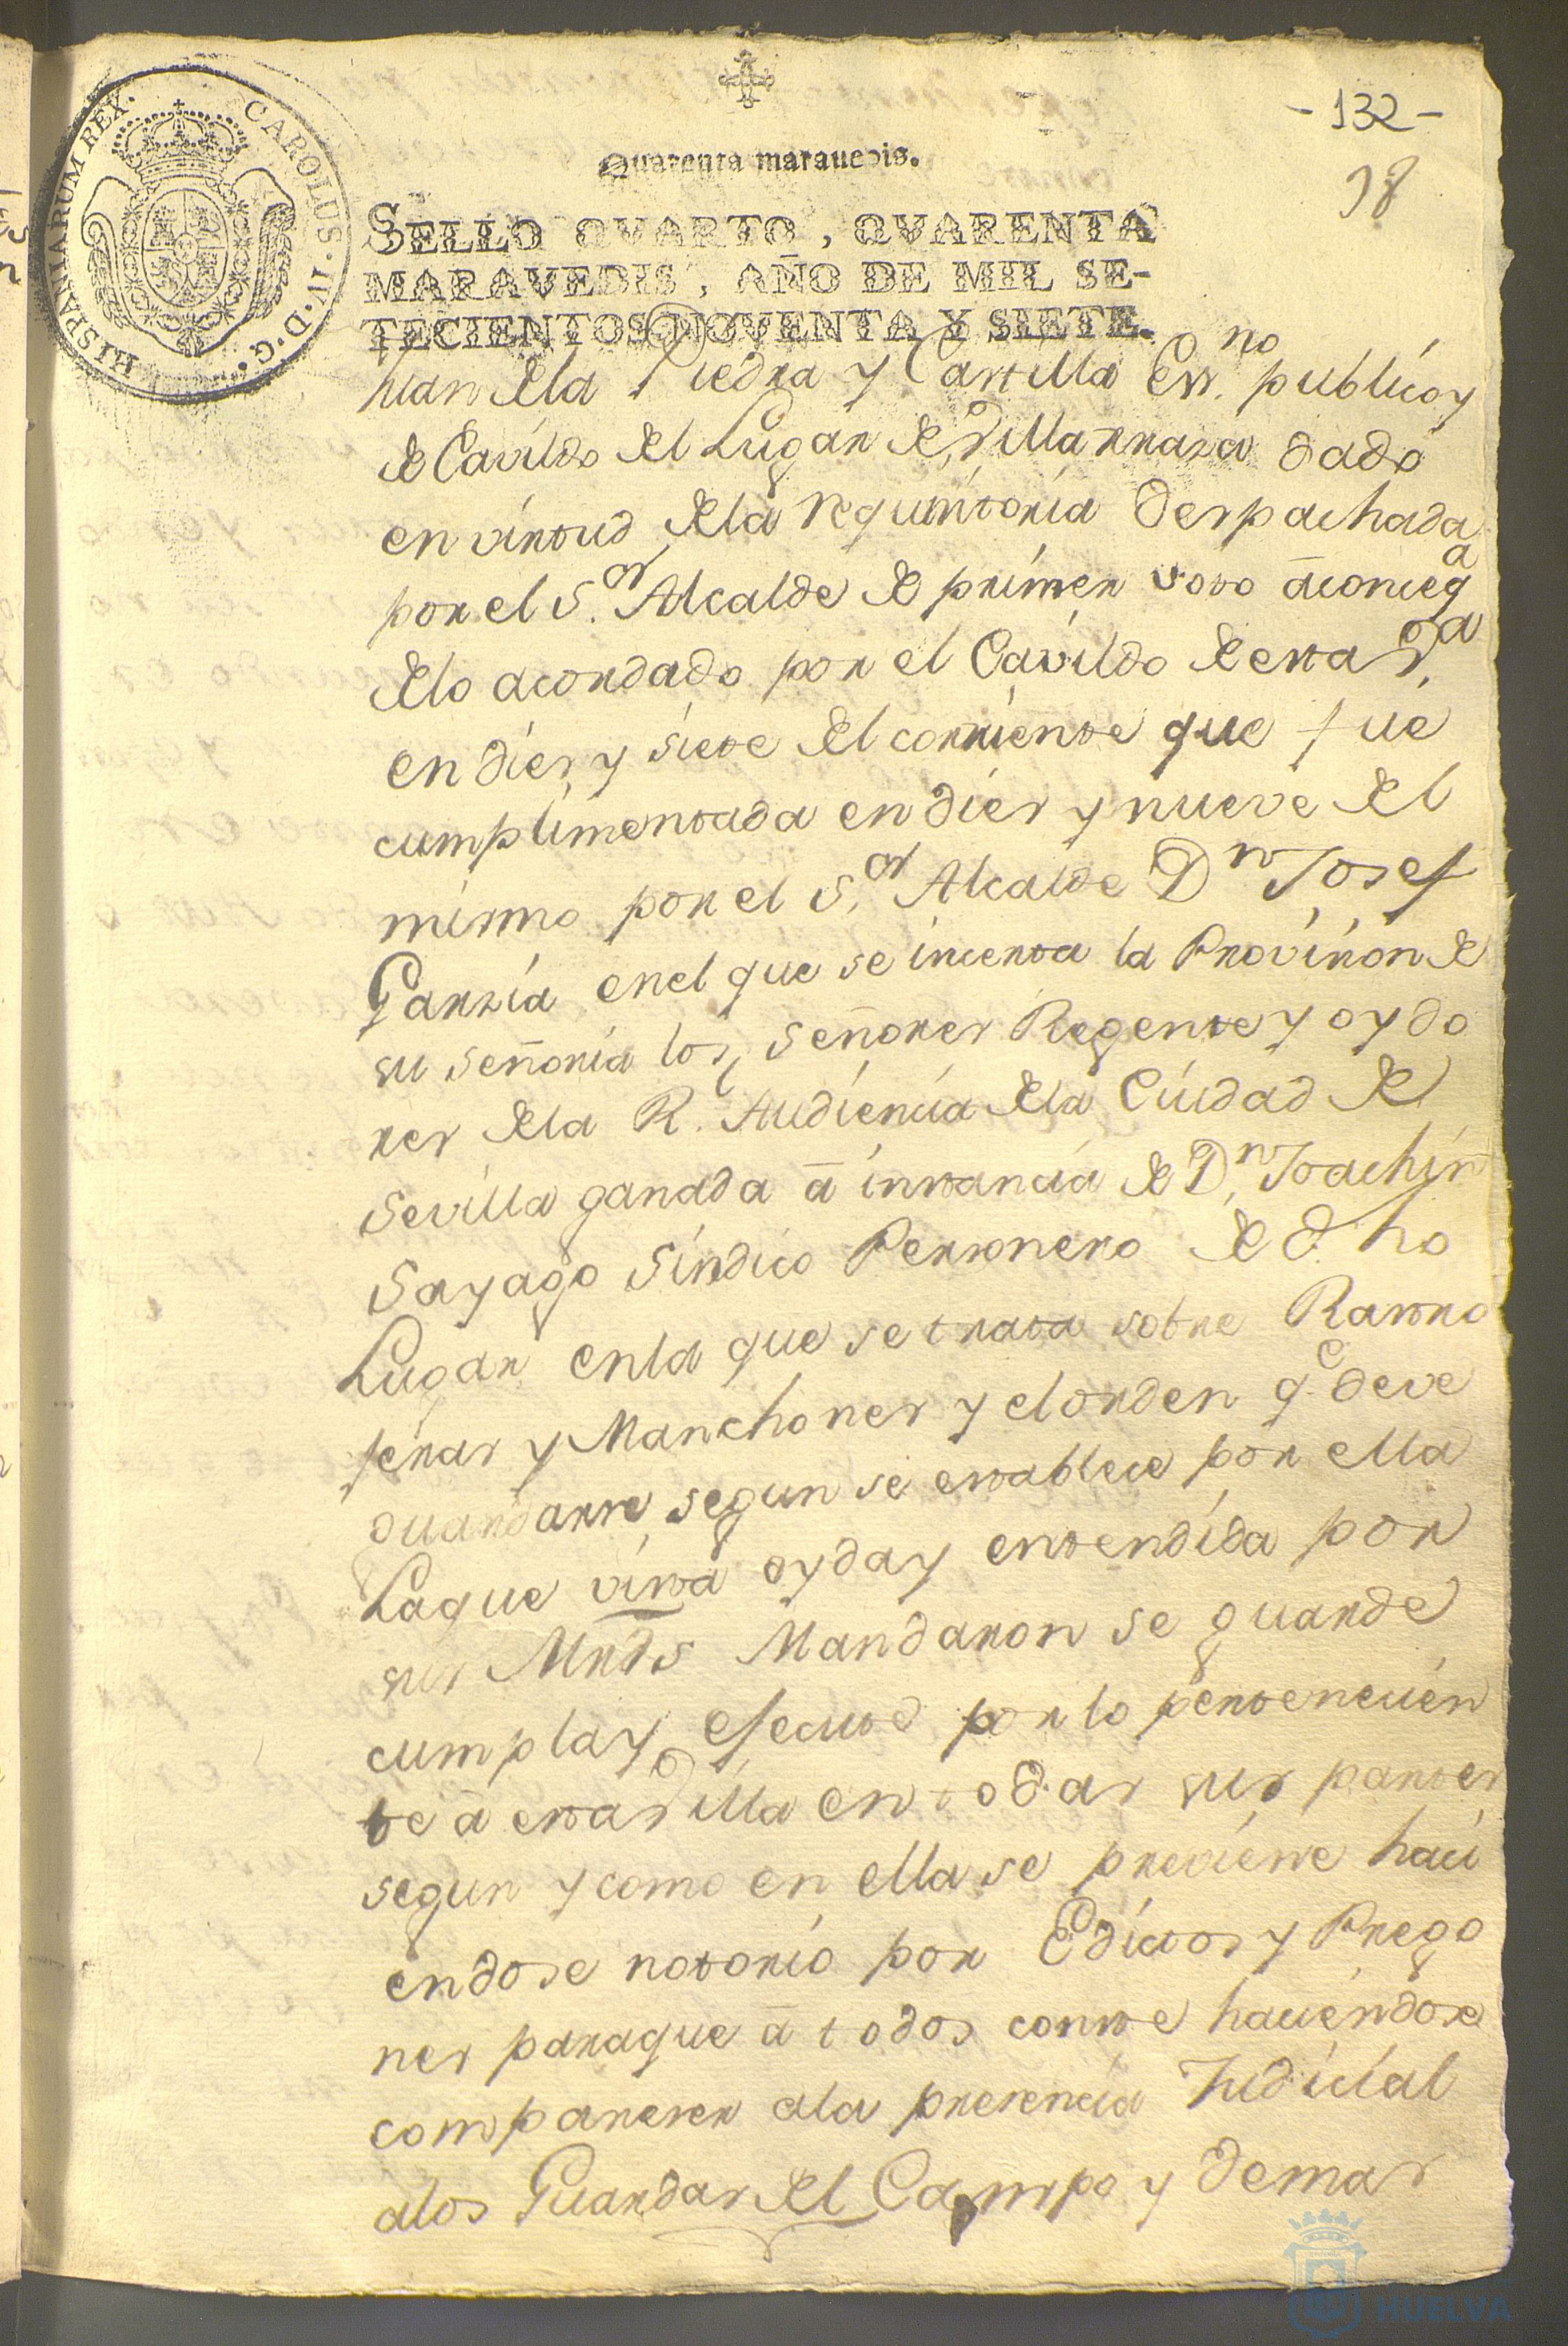 - 132 -
98
CAROLUS·IV·D·G·
HISPANIARUM REX·
Quarenta marauedis.
SELLO QVARTO, QVARENTA
MARAVEDIS, AÑO DE MIL SE-
TECIENTOS NOVENTA Y SIETE.
Juan dela Piedra y Castilla Essno. publico y
de Cavildo del Lugar de Villarrasa dado
en virtud dela requisitoria despachada
por el S.or Alcalde de primer voto āconseqa
delo acordado por el Cavildo de esta Va
en dies y siete del corriente que fué
cumplimentada en dies y nueve del
mismo por el S.or Alcalde Dn Josef
Garzia enel que se incerta la Provision de
su señoria los señores Regente y oydo
res dela R. Audiencia dela Ciudad de
Sevilla ganada ā instancia de Dn Joachin
Sayago Sindico Personero de dho
Lugar enla que se trata sobre Rastro
feras y Manchones y el orden qe deve
guardarse segun se establece por ella
Laque vista oyda y entendida por
sus Mrds Mandaron se guarde
cumpla y efecute por lo pertenecien
te ā esta Villa en todas sus partes
segun y como en ella se previene haci
endose notorio por Edictos y Prego
nes paraque ā todos conste haciendose
compareser ala presencia Judicial
alos Guardas del Campo y demas
HUELVA